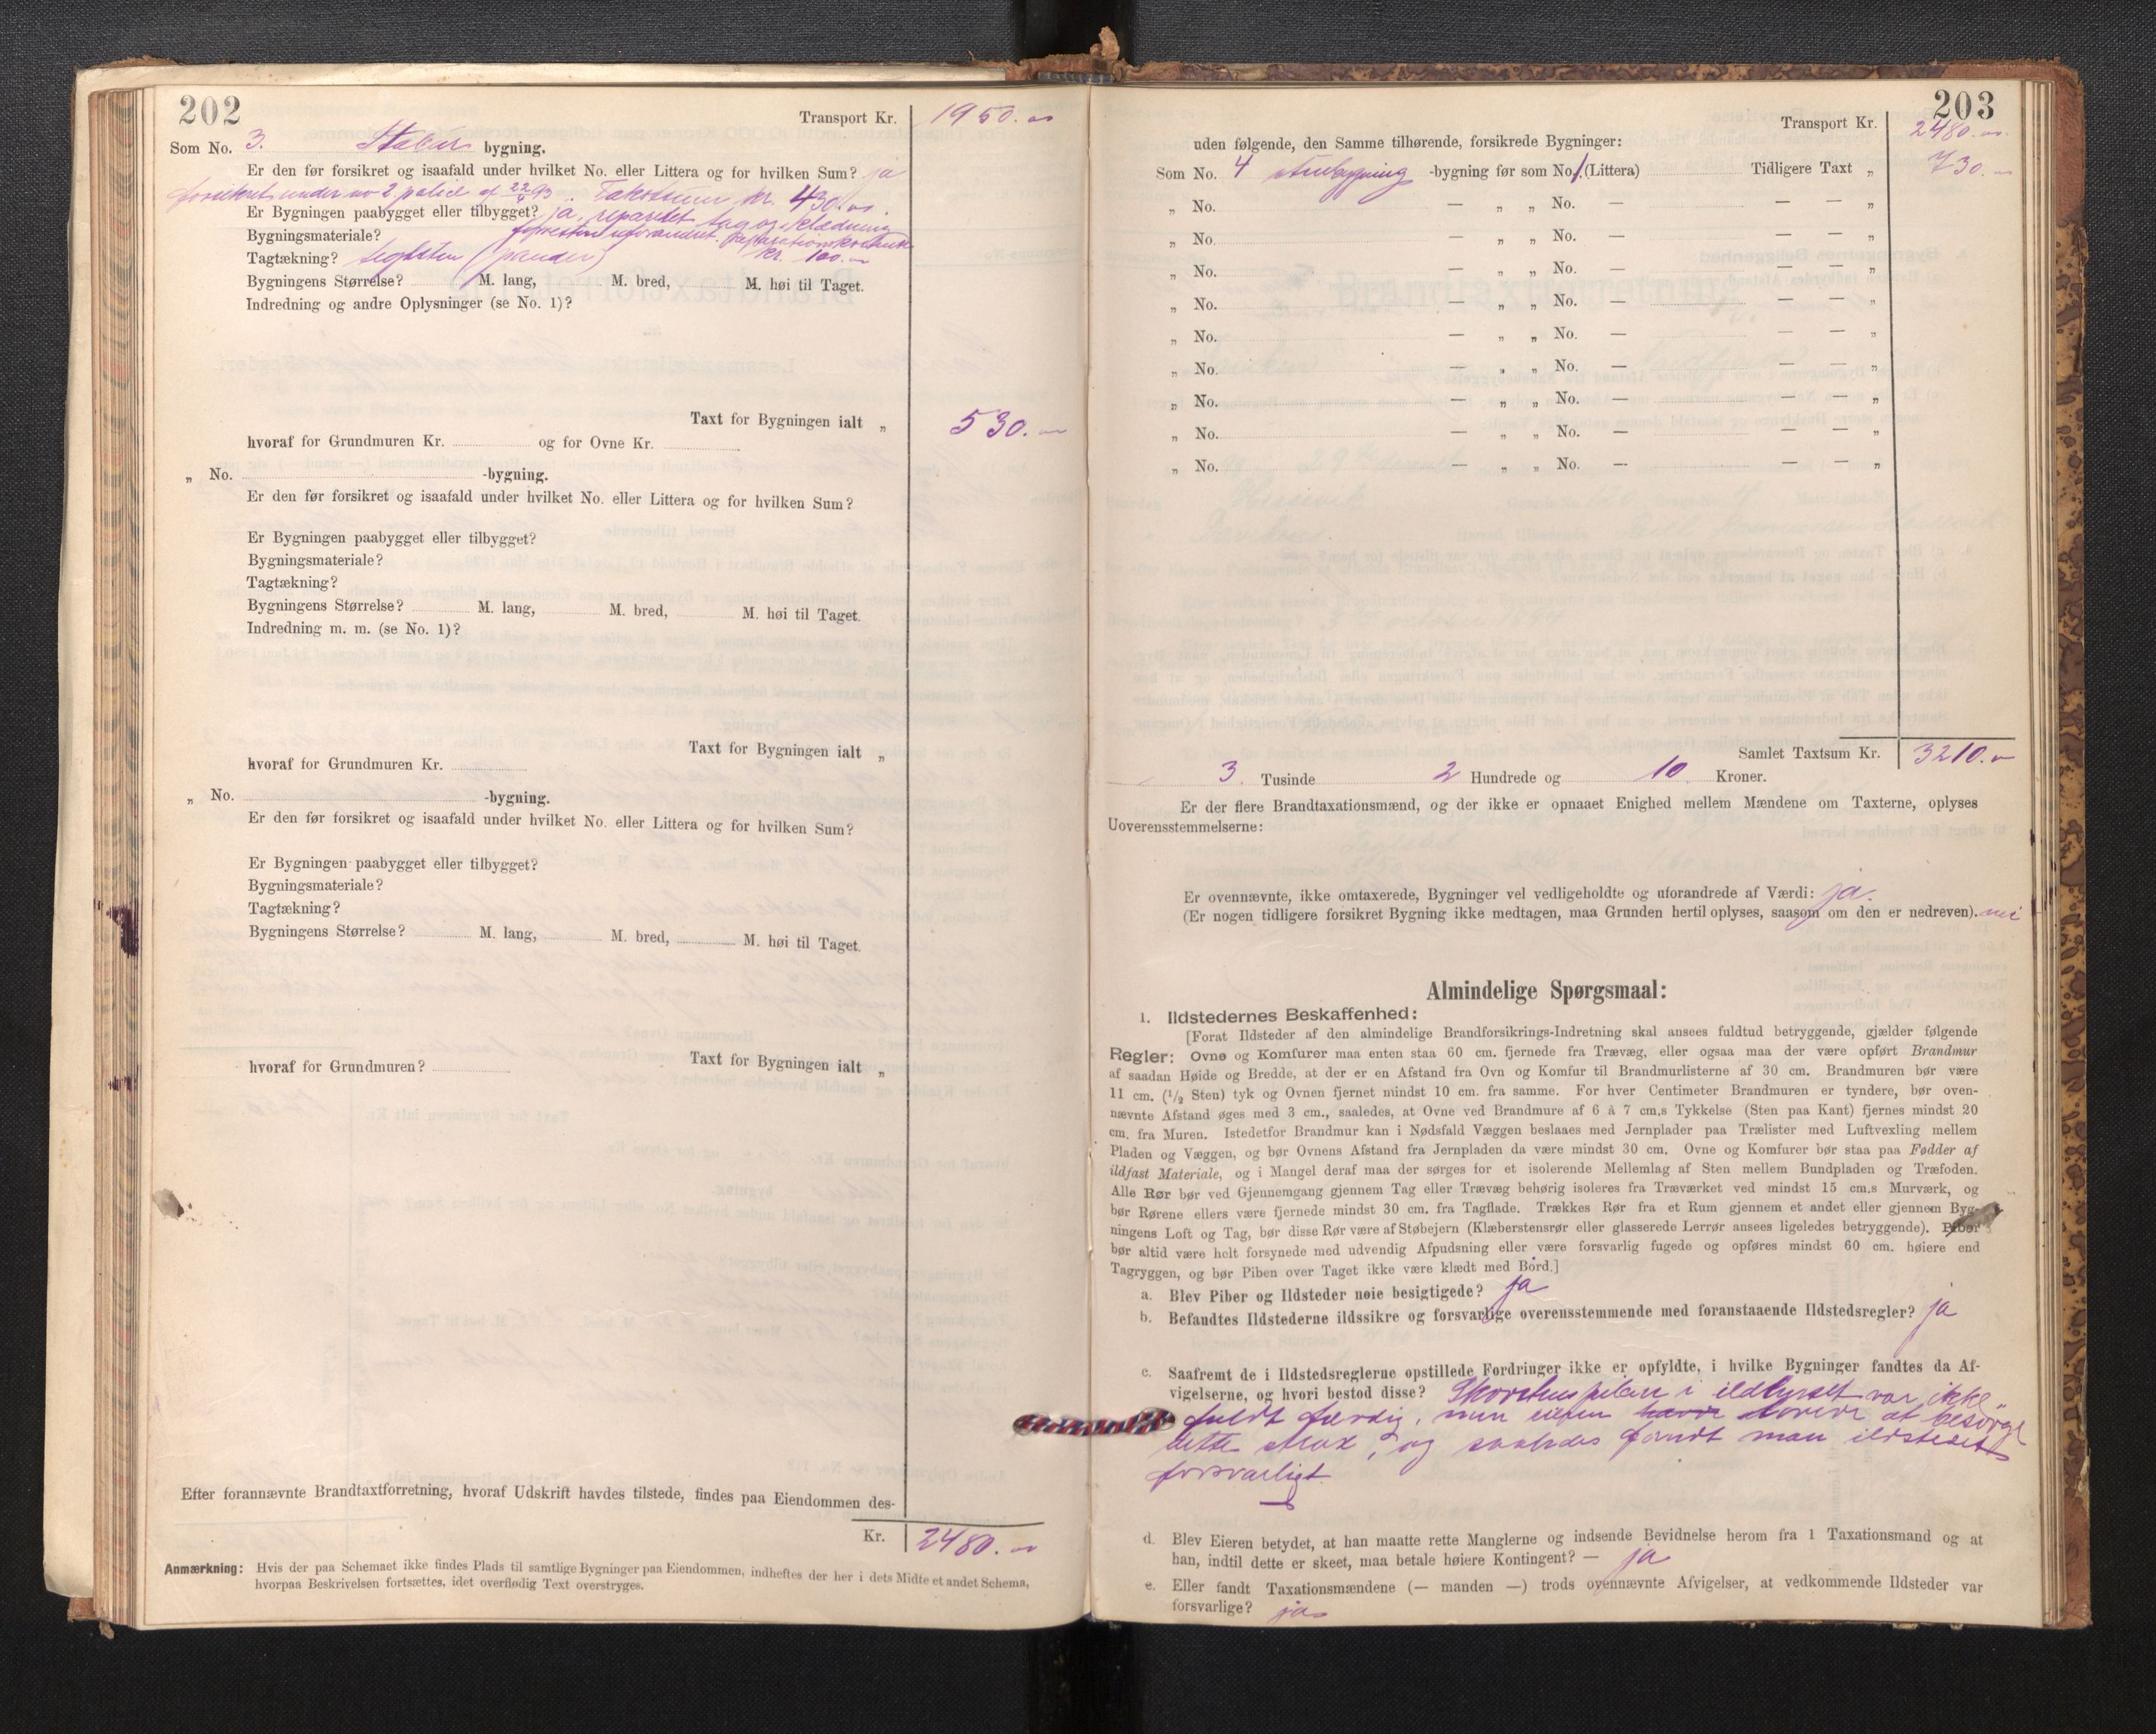 202
Transport Kr. 1950.
Som No. 3. Stabur bygning.
Er den før forsikret og isaafald under hvilket No. eller Littera og for hvilken Sum? ja
forsikret under no 2 police af 22/ 93. Takstsum kr. 430.
Er Bygningen paabygget eller tilbygget? ja, reparert tag og klædning
Bygningsmateriale? forresten uforandret. Reparationskostende
Tagtækning? teglsten (pander) kr. 100.
Bygningens Størrelse? M. lang, M. bred, M. høi til Taget.
Indredning og andre Oplysninger (se No. 1)?
Taxt for Bygningen ialt „ 530.
hvoraf for Grundmuren Kr. og for Ovne Kr.
„ No. -bygning.
Er den før forsikret og isaafald under hvilket No. eller Littera og for hvilken Sum?
Er Bygningen paabygget eller tilbygget?
Bygningsmateriale?
Tagtækning?
Bygningens Størrelse? M. lang, M. bred, M. høi til Taget.
Indredning m. m. (se No. 1)?
Taxt for Bygningen ialt „
hvoraf for Grundmuren Kr.
„ No. -bygning.
Er den før forsikret og isaafald under hvilket No. eller Littera og for hvilken Sum?
Er Bygningen paabygget eller tilbygget?
Bygningsmateriale?
Tagtækning?
Bygningens Størrelse? M. lang, M. bred, M. høi til Taget.
Taxt for Bygningen ialt „
hvoraf for Grundmuren?
Efter forannævnte Brandtaxtforretning, hvoraf Udskrift havdes tilstede, findes paa Eiendommen des-
Kr. 2480.
Anmærkning: Hvis der paa Schemaet ikke findes Plads til samtlige Bygninger paa Eiendommen, indheftes der her i dets Midte et andet Schema,
hvorpaa Beskrivelsen fortsættes, idet overflødig Text overstryges.
203
Transport Kr. 2480.
uden følgende, den Samme tilhørende, forsikrede Bygninger:
Som No. 4 stuebygning -bygning før som No. 1. (Littera) Tidligere Taxt „ 730.
„ No. — „ „ No. — — — „
„ No. — „ „ No. — — — „
„ No. — „ „ No. — — — „
„ No. — „ „ No. — — — „
„ No. — „ „ No. — — — „
„ No. — „ „ No. — — — „
„ No. — „ „ No. — — — „
„ No. — „ „ No. — — — „
„ No. — „ „ No. — — — „
Samlet Taxtsum Kr. 3210.
3. Tusinde 2 Hundrede og 10 Kroner.
Er der flere Brandtaxationsmænd, og der ikke er opnaaet Enighed mellem Mændene om Taxterne, oplyses
Uoverensstemmelserne:
Er ovennævnte, ikke omtaxerede, Bygninger vel vedligeholdte og uforandrede af Værdi: ja.
(Er nogen tidligere forsikret Bygning ikke medtagen, maa Grunden hertil oplyses, saasom om den er nedreven). nei
Almindelige Spørgsmaal:
1. Ildstedernes Beskaffenhed:
[Forat Ildsteder af den almindelige Brandforsikrings-Indretning skal ansees fuldtud betryggende, gjælder følgende
Regler: Ovne og Komfurer maa enten staa 60 cm. fjernede fra Trævæg, eller ogsaa maa der være opført Brandmur
af saadan Høide og Bredde, at der er en Afstand fra Ovn og Komfur til Brandmurlisterne af 30 cm. Brandmuren bør være
11 cm. (1/2 Sten) tyk og Ovnen fjernet mindst 10 cm. fra samme. For hver Centimeter Brandmuren er tyndere, bør oven-
nævnte Afstand øges med 3 cm., saaledes, at Ovne ved Brandmure af 6 à 7 cm.s Tykkelse (Sten paa Kant) fjernes mindst 20
cm. fra Muren. Istedetfor Brandmur kan i Nødsfald Væggen beslaaes med Jernplader paa Trælister med Luftvexling mellem
Pladen og Væggen, og bør Ovnens Afstand fra Jernpladen da være mindst 30 cm. Ovne og Komfurer bør staa paa Fødder af
ildfast Materiale, og i Mangel deraf maa der sørges for et isolerende Mellemlag af Sten mellem Bundpladen og Træfoden.
Alle Rør bør ved Gjennemgang gjennem Tag eller Trævæg behørig isoleres fra Træværket ved mindst 15 cm.s Murværk, og
bør Rørene ellers være fjernede mindst 30 cm. fra Tagflade. Trækkes Rør fra et Rum gjennem et andet eller gjennem Byg-
ningens Loft og Tag, bør disse Rør være af Støbejern (Klæberstensrør eller glasserede Lerrør ansees ligeledes betryggende). Piber
bør altid være helt forsynede med udvendig Afpudsning eller være forsvarlig fugede og opføres mindst 60 cm. høiere end
Tagryggen, og bør Piben over Taget ikke være klædt med Bord.]
a. Blev Piber og Ildsteder nøie besigtigede? ja
b. Befandtes Ildstederne ildssikre og forsvarlige overensstemmende med foranstaaende Ildstedsregler? ja
c. Saafremt de i Ildstedsreglerne opstillede Fordringer ikke er opfyldte, i hvilke Bygninger fandtes da Af-
vigelserne, og hvori bestod disse? Skorstenspiben i ildhuset var ikke
fuldt færdig, men eieren havde lovede at besørge
dette strax, og saaledes fandt man ildstedet
forsvarligt.
d. Blev Eieren betydet, at han maatte rette Manglerne og indsende Bevidnelse herom fra 1 Taxationsmand og at
han, indtil dette er skeet, maa betale høiere Kontingent? — ja
e. Eller fandt Taxationsmændene (— manden —) trods ovennævnte Afvigelser, at vedkommende Ildsteder var
forsvarlige? ja